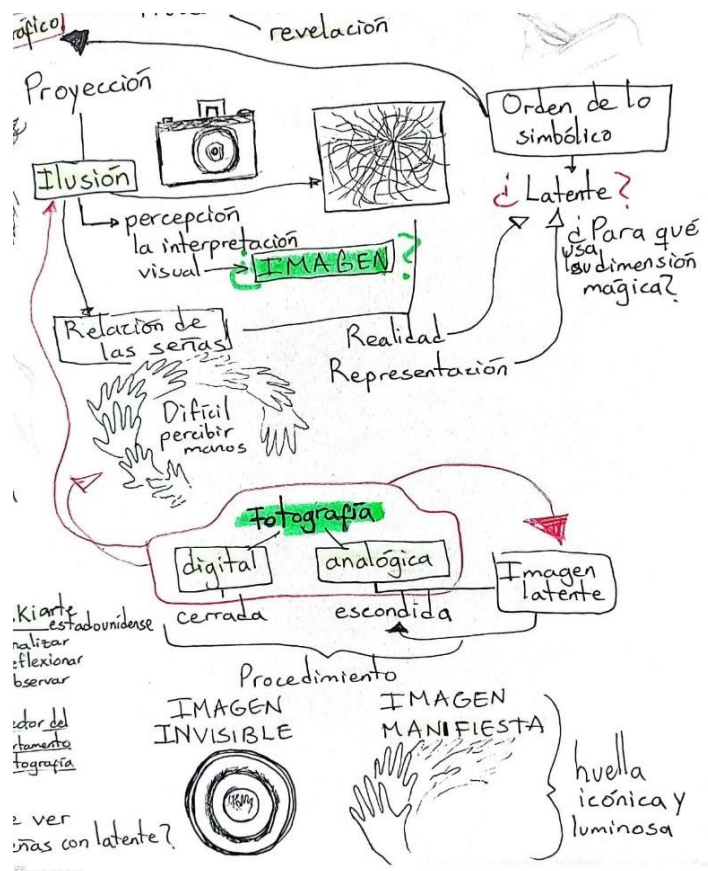 ráfico
revelación
Proyección
Orden de lo
simbólico
Ilusión
¿Latente?
percepción
la interpretación
visual
¿IMAGEN?
¿Para qué
usa
su dimensión
mágica?
Relación de
las señas
Realidad
Representación
Difícil
percibir
manos
Fotografía
digital
analógica
Imagen
latente
cerrada
escondida
.Kiarte
estadounidense
nalizar
eflexionar
bservar
Procedimiento
IMAGEN
INVISIBLE
IMAGEN
MANIFIESTA
ector del
rtamento
tografía
huella
icónica y
luminosa
e ver
eñas con latente?